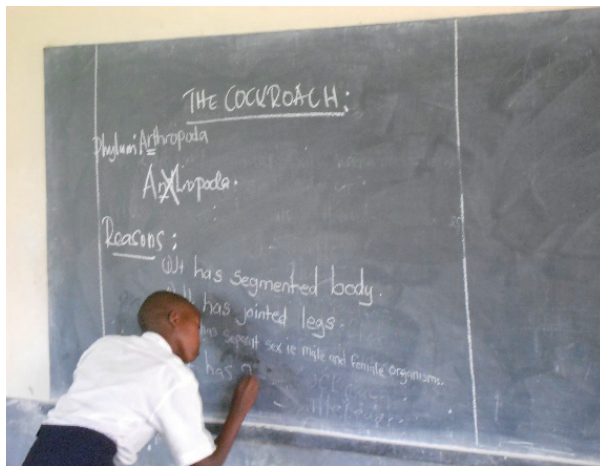 THE COCKROACH:
Phylum: Arthropoda
Anthropoda.
Reasons:
① It has segmented body.
It has jointed legs.
has separat sex ie male and female organisms.
has